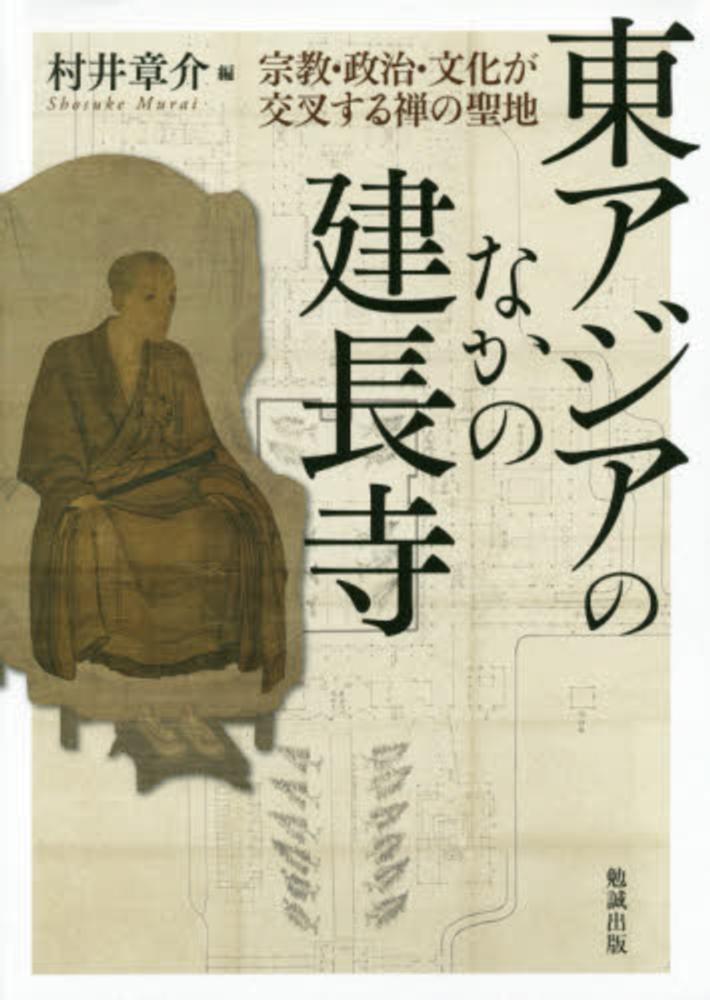 東アジアの
なかの
建長寺
宗教・政治・文化が
交叉する禅の聖地
村井章介 編
Shosuke Murai
勉誠出版